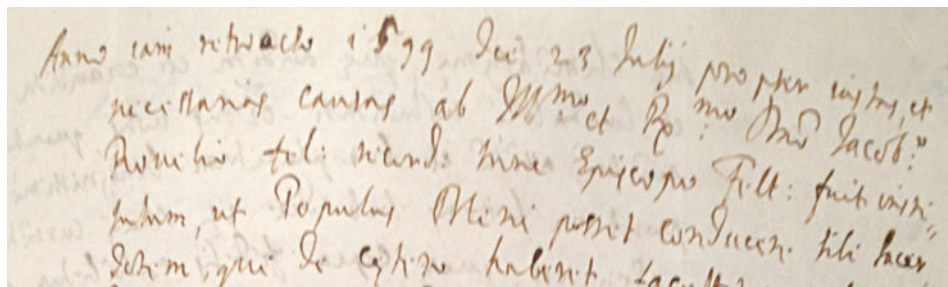 Anno iam retroacto 1599 die 23 Julij propter iustas, et
necessarias causas ab Ill.mo et R.mo D.no Jacob.o
Rovelio fel: record: tunc Episcopo Felt: fuit insti=
tutum, ut Populus Primi posset conducere sibi Sacer
dotem, qui de cetero haberet